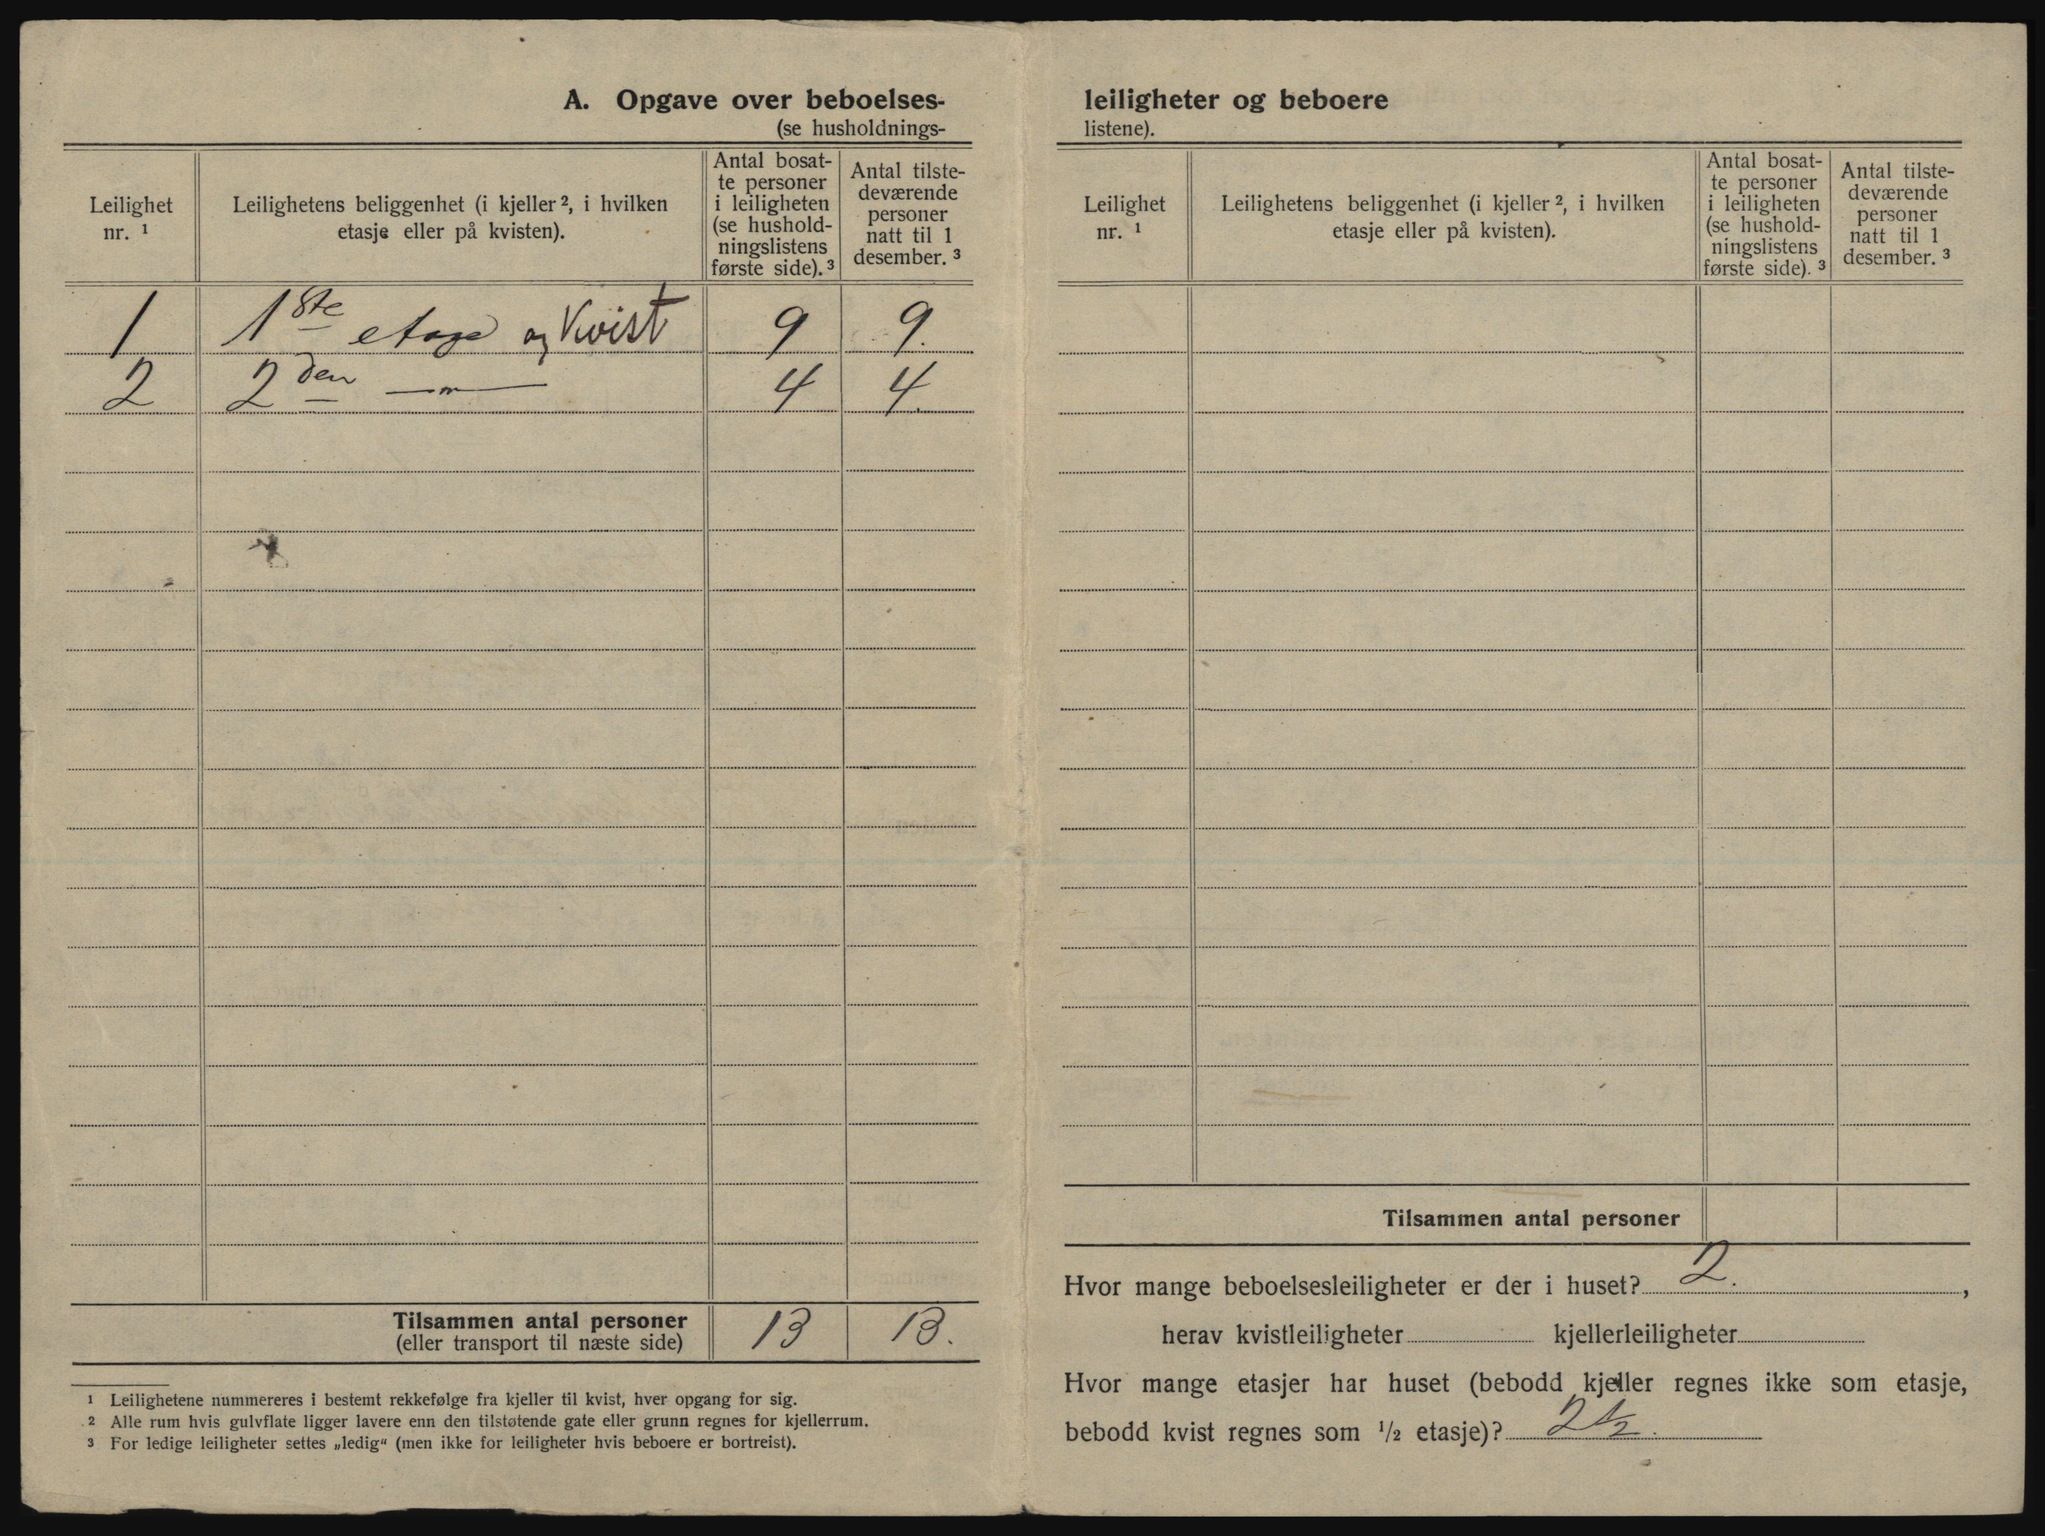 A. Opgave over beboelses-
(se husholdnings-
Leilighet
nr. ¹
Leilighetens beliggenhet (i kjeller ², i hvilken
etasje eller på kvisten).
Antal bosat-
te personer
i leiligheten
(se hushold-
ningslistens
første side). ³
Antal tilste-
deværende
personer
natt til 1
desember. ³
1 1ste etage og Kvist 9 9.
2 2den —〃— 4 4.
Tilsammen antal personer 13 13.
(eller transport til næste side)
¹ Leilighetene nummereres i bestemt rekkefølge fra kjeller til kvist, hver opgang for sig.
² Alle rum hvis gulvflate ligger lavere enn den tilstøtende gate eller grunn regnes for kjellerrum.
³ For ledige leiligheter settes „ledig“ (men ikke for leiligheter hvis beboere er bortreist).
leiligheter og beboere
listene).
Leilighet
nr. ¹
Leilighetens beliggenhet (i kjeller ², i hvilken
etasje eller på kvisten).
Antal bosat-
te personer
i leiligheten
(se hushold-
ningslistens
første side). ³
Antal tilste-
deværende
personer
natt til 1
desember. ³
Tilsammen antal personer
Hvor mange beboelsesleiligheter er der i huset? 2. ,
herav kvistleiligheter kjellerleiligheter
Hvor mange etasjer har huset (bebodd kjeller regnes ikke som etasje,
bebodd kvist regnes som ½ etasje)? 2 ½.